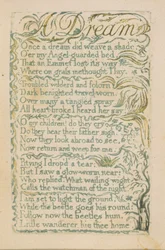 A Dream
Once a dream did weave a shade,
O'er my Angel-guarded bed,
That an Emmet lost it's way
Where on grass methought I lay.
Troubled wilderd and folorn
Dark benighted travel-worn,
Over many a tangled spray
All heart-broke I heard her say.
O my children! do they cry
Do they hear their father sigh.
Now they look abroad to see,
Now return and weep for me.
Pitying I drop'd a tear:
But I saw a glow-worm near:
Who replied. What wailing wight
Calls the watchman of the night.
I am set to light the ground,
While the beetle goes his round:
Follow now the beetles hum,
Little wanderer hie thee home